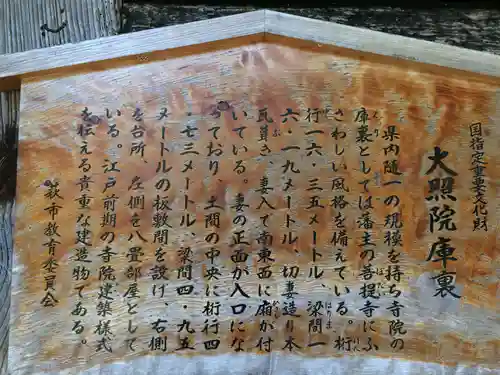 国指定重要文化財
大照院庫裏
県内随一の規模を持ち寺院の
庫裏としては藩主の菩提寺にふ
さわしい風格を備えている。桁
行一六、三五メートル、梁間一
六・一九メートル、切妻造り本
瓦葺き、妻入で南東西に廂が付
いている。妻の正面が入口にな
っており、土間の中央に桁行四
・七三メートル、梁間四・九五
メートルの板敷間を設け、右側
を台所、左側を八畳部屋として
いる。江戸前期の寺院建築様式
を伝える貴重な建造物である。
萩市教育委員会